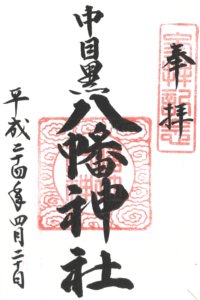 奉拝
中目黒
八幡神社
平成二十四年四月二十日